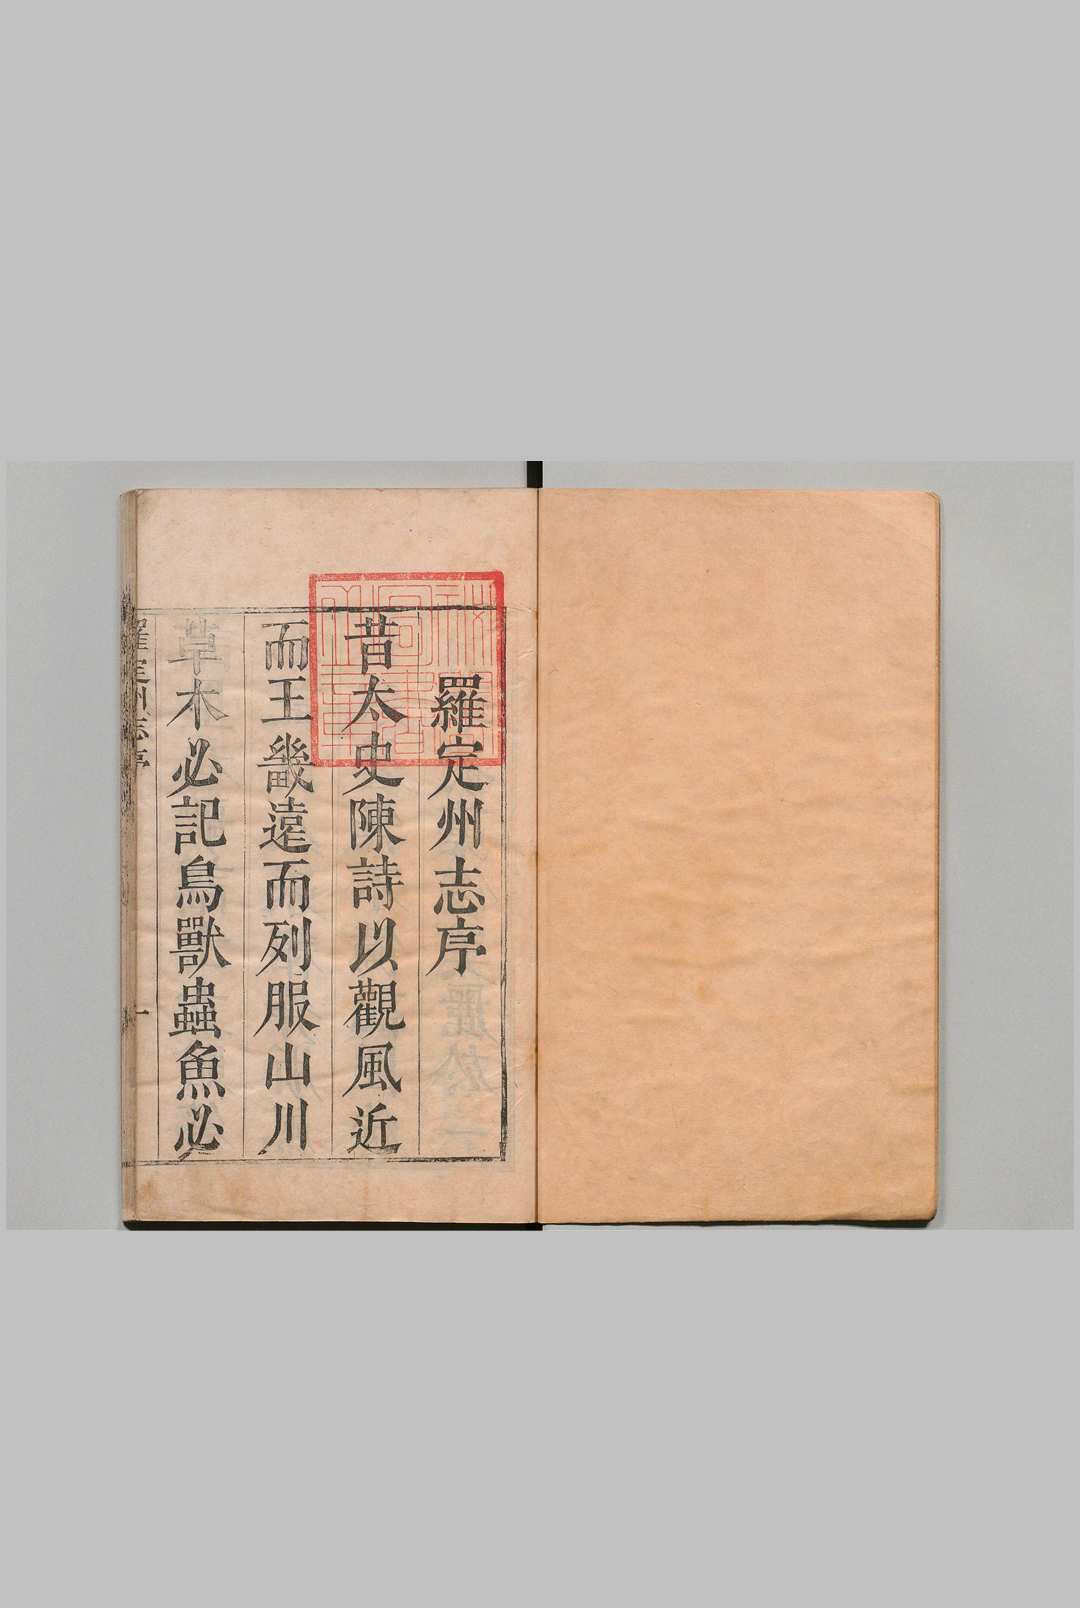 羅定州志序
昔太史陳詩以觀風近
而王畿遠而列服山川
草木必記鳥獸蟲魚必
羅定州志序
一